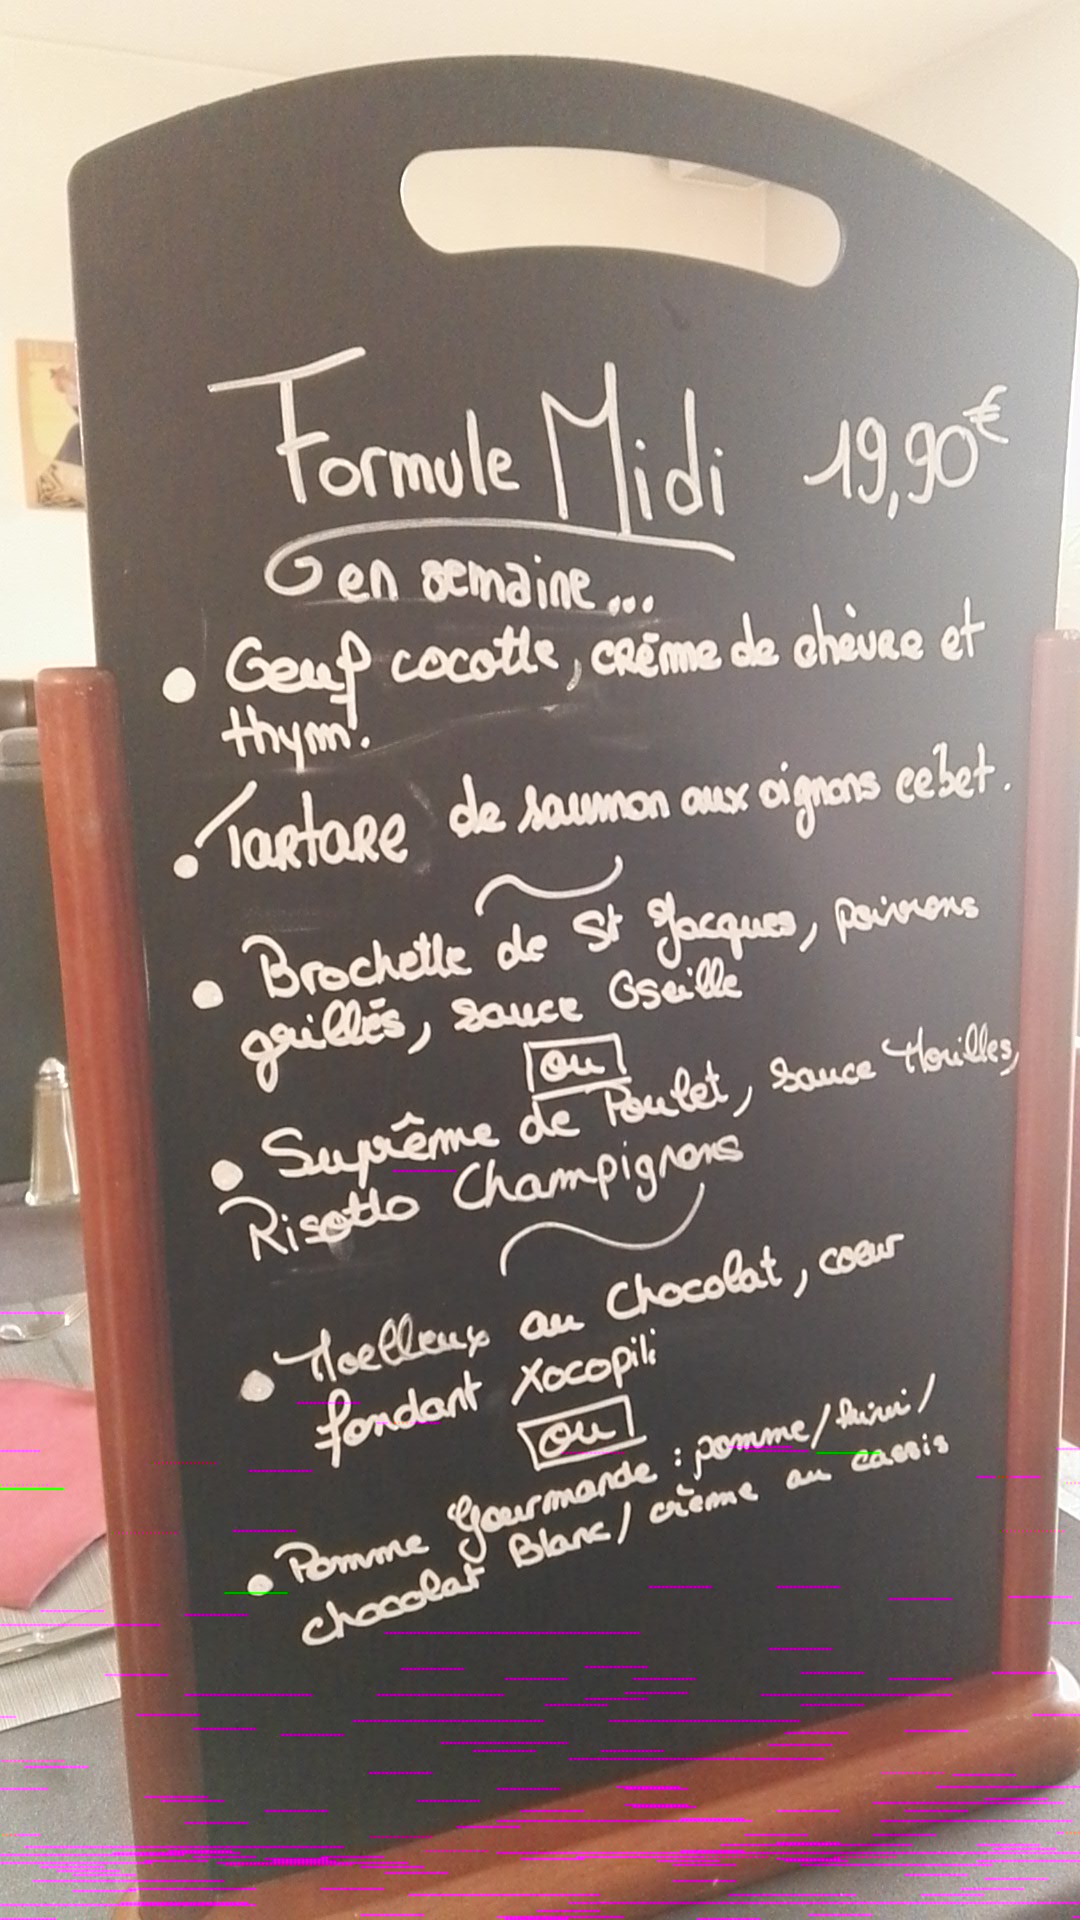 Formule Midi 19,90€
en semaine...
• Oeuf cocotte, crème de chèvre et
thym.
• Tartare de saumon aux oignons cébet.
• Brochette de St Jacques, poivrons
grillés, sauce Oseille
ou
• Suprême de Poulet, sauce Morilles,
Risotto Champignons
• Moelleux au Chocolat, coeur
fondant Xocopili
ou
• Pomme Gourmande : pomme/ /
chocolat Blanc/ crème au cassis